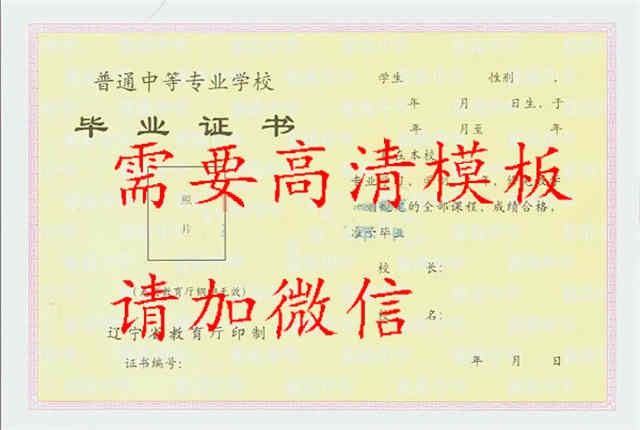 普通中等专业学校
毕业证书
照
片
辽宁省教育厅印制
证书编号:
学生 性别 ,
年 月 日生, 于
年 月至 年
在本校
的全部课程, 成绩合格,
准予毕业
校 长:
名:
年 月 日
需要高清模板
请加微信